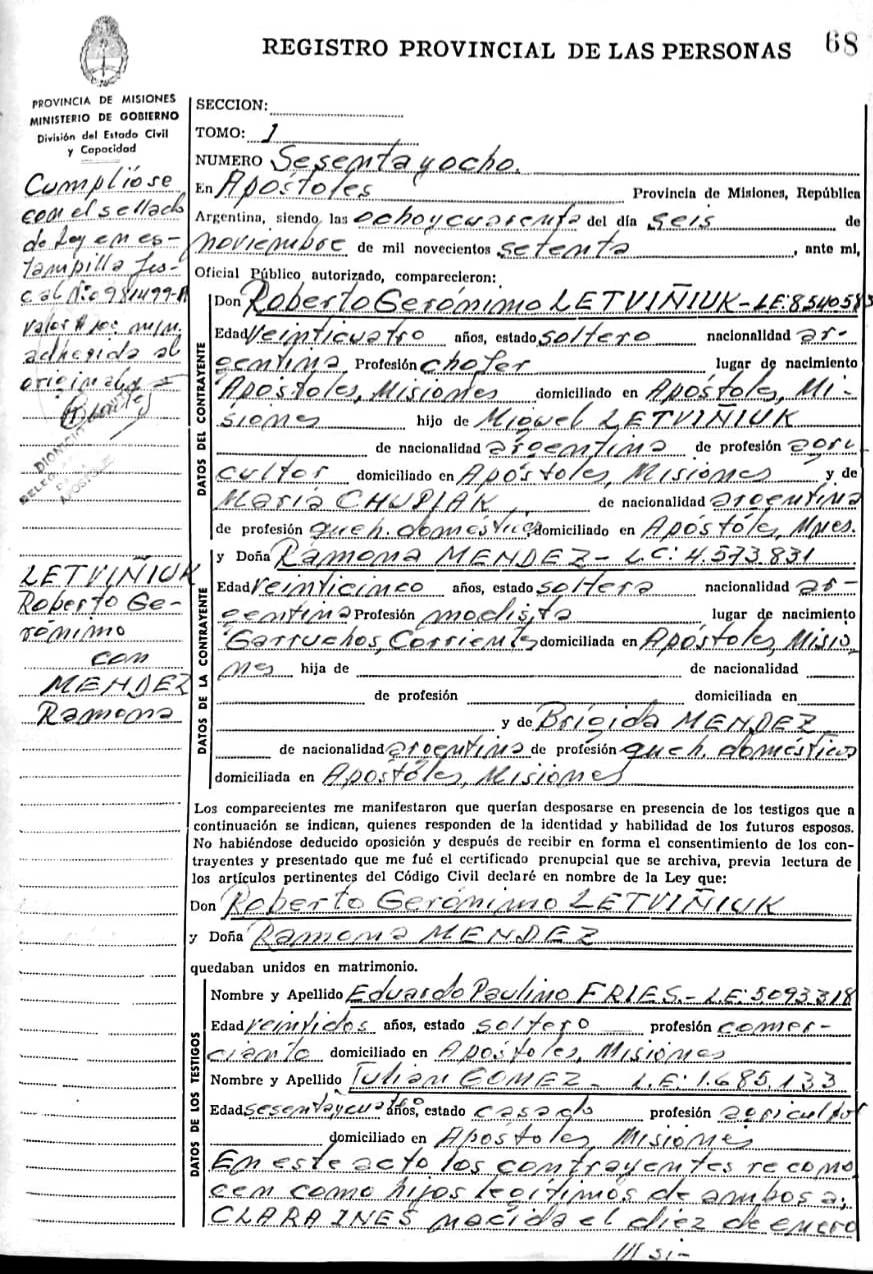 REGISTRO PROVINCIAL DE LAS PERSONAS 68
PROVINCIA DE MISIONES
MINISTERIO DE GOBIERNO
División del Estado Civil
y Capacidad
Cumplióse
con el sellado
de Ley en es-
tampilla fis-
cal Nº 981499-A
valor $
adherida al
original
LETVIÑIUK
Roberto Ge-
rónimo
con
MENDEZ
Ramona
SECCION:
TOMO: 1
NUMERO Sesenta y ocho.
En Apóstoles Provincia de Misiones, República
Argentina, siendo las ocho y cuarenta del día seis de
noviembre de mil novecientos setenta, ante mí,
Oficial Público autorizado, comparecieron:
DATOS DEL CONTRAYENTE
Don Roberto Gerónimo LETVIÑIUK - LE: 8540583
Edad Veinticuatro años, estado soltero nacionalidad ar-
gentina Profesión chofer lugar de nacimiento
Apóstoles, Misiones domiciliado en Apóstoles, Mi-
siones hijo de Miguel LETVIÑIUK
de nacionalidad argentina de profesión agri
cultor domiciliado en Apóstoles, Misiones y de
María CHUPIAK de nacionalidad argentina
de profesión queh. domésticos domiciliado en Apóstoles, Mnes.
DATOS DE LA CONTRAYENTE
y Doña Ramona MENDEZ - L.C: 4.573.831
Edad Veinticinco años, estado soltera nacionalidad ar-
gentina Profesión modista lugar de nacimiento
Garruchos, Corrientes domiciliada en Apóstoles, Misio,
nes hija de de nacionalidad
de profesión domiciliada en
y de Brígida MENDEZ
de nacionalidad argentina de profesión queh. domésticos
domiciliada en Apóstoles, Misiones
Los comparecientes me manifestaron que querían desposarse en presencia de los testigos que a
continuación se indican, quienes responden de la identidad y habilidad de los futuros esposos.
No habiéndose deducido oposición y después de recibir en forma el consentimiento de los con-
trayentes y presentado que me fué el certificado prenupcial que se archiva, previa lectura de
los artículos pertinentes del Código Civil declaré en nombre de la Ley que:
Don Roberto Gerónimo LETVIÑIUK
y Doña Ramona MENDEZ
quedaban unidos en matrimonio.
DATOS DE LOS TESTIGOS
Nombre y Apellido Eduardo Paulino FRIES.- LE: 5093318
Edad Veintidos años, estado soltero profesión comer-
ciante domiciliado en Apóstoles, Misiones
Nombre y Apellido Julian GOMEZ - L.E: 1.685.133
Edad sesentaycuatro años, estado casado profesión agricultor
domiciliado en Apóstoles, Misiones
En este acto los contrayentes recono
cen como hijos legítimos de ambos a:
CLARA INES nacida el diez de enero
/// si-